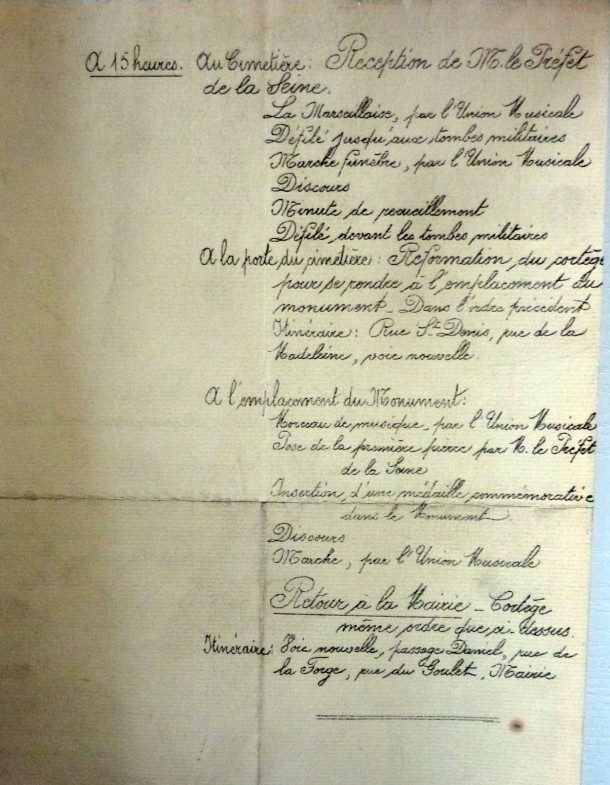 A 15 heures. Au Cimetière : Réception de M. le Préfet
de la Seine.
La Marseillaise, par l'Union Musicale
Défilé jusqu'aux tombes militaires
Marche funèbre, par l'Union Musicale
Discours
Minute de recueillement
Défilé devant les tombes militaires
A la porte du cimetière : Reformation du cortège
pour se rendre à l'emplacement du
monument _ Dans l'ordre précédent
Itinéraire : Rue St Denis, rue de la
Madeleine, voie nouvelle.
A l'emplacement du Monument :
Morceau de musique, par l'Union Musicale
Pose de la première pierre par M. le Préfet
de la Seine
Insertion, d'une médaille commémorative
dans le Monument.
Discours
Marche, par l'Union Musicale
Retour à la Mairie _ Cortège
même ordre que ci-dessus.
Itinéraire : Voie nouvelle, passage Daniel, rue de
la Forge, rue du Goulet, Mairie